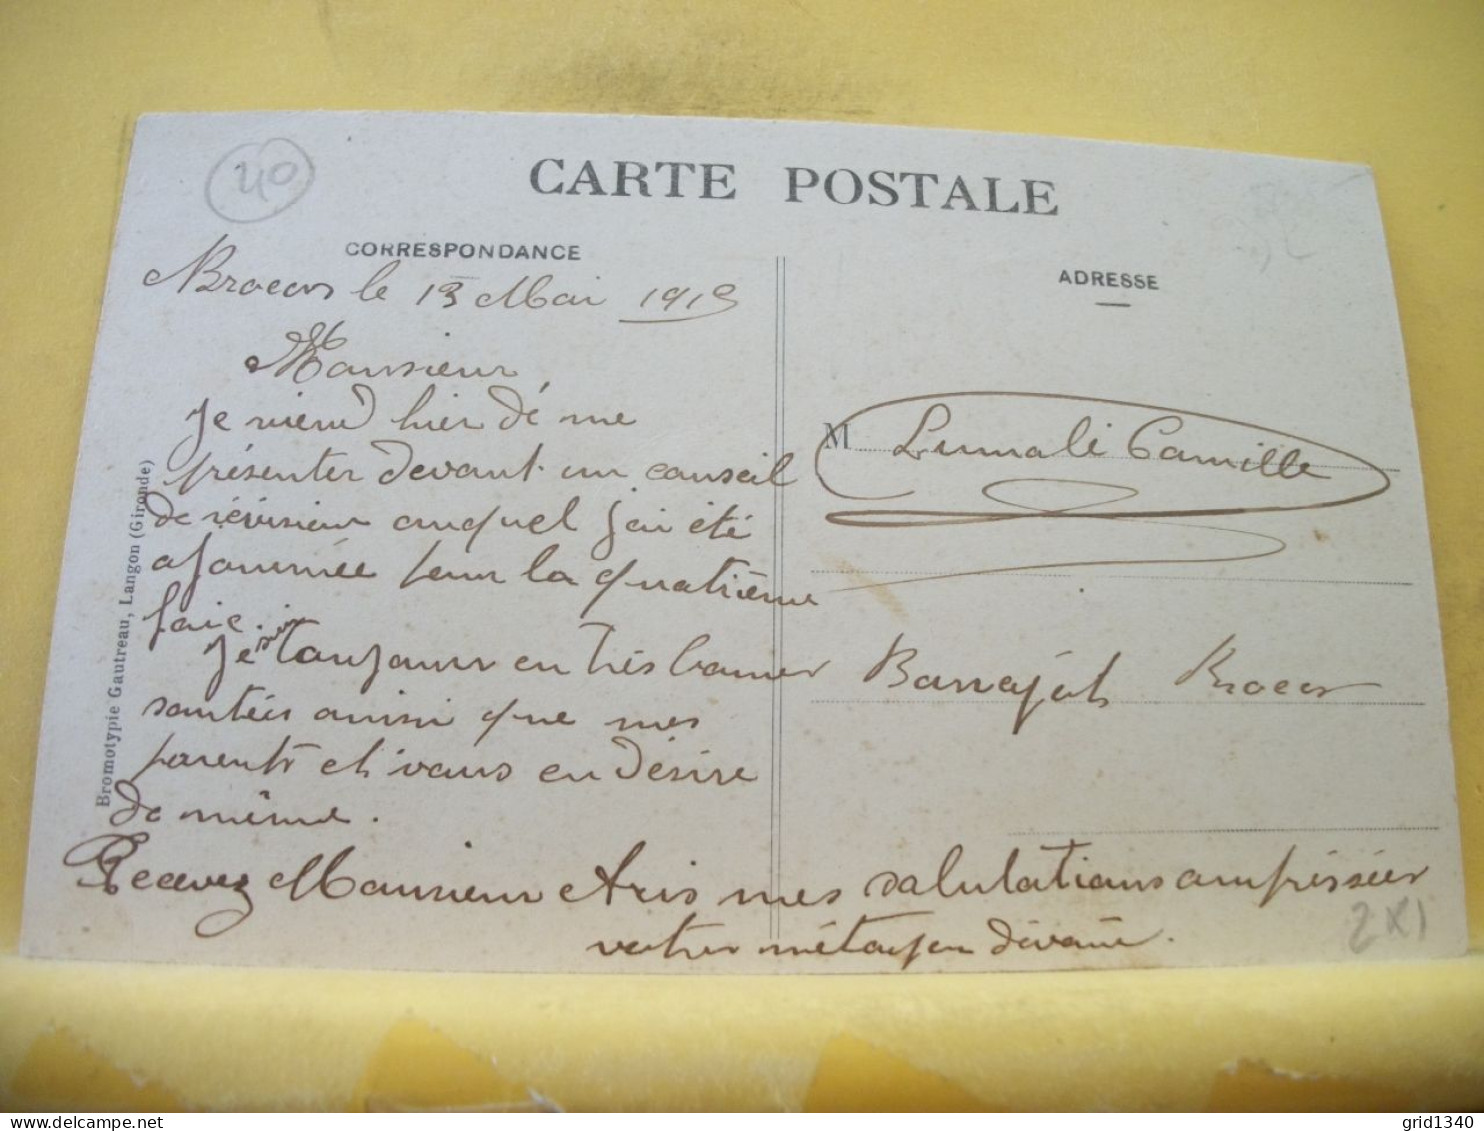 40
CARTE POSTALE
CORRESPONDANCE
ADRESSE
Brocas le 13 Mai 1918
Monsieur
Je viend hier dé me
présenter devant un conseil
de révision auquel j'ai été
ajournée pour la quatrième
fois.
Je suis toujours en très bonner
santéis ainsi que mes
parents et vous en désire
de même.
Recevez Monsieur Aris mes salutations empréssées
votre métayer dévoué.
M Lumalé Camille
Brocas
2X1
Bromotypie Gautreau, Langon (Gironde)
grid1340